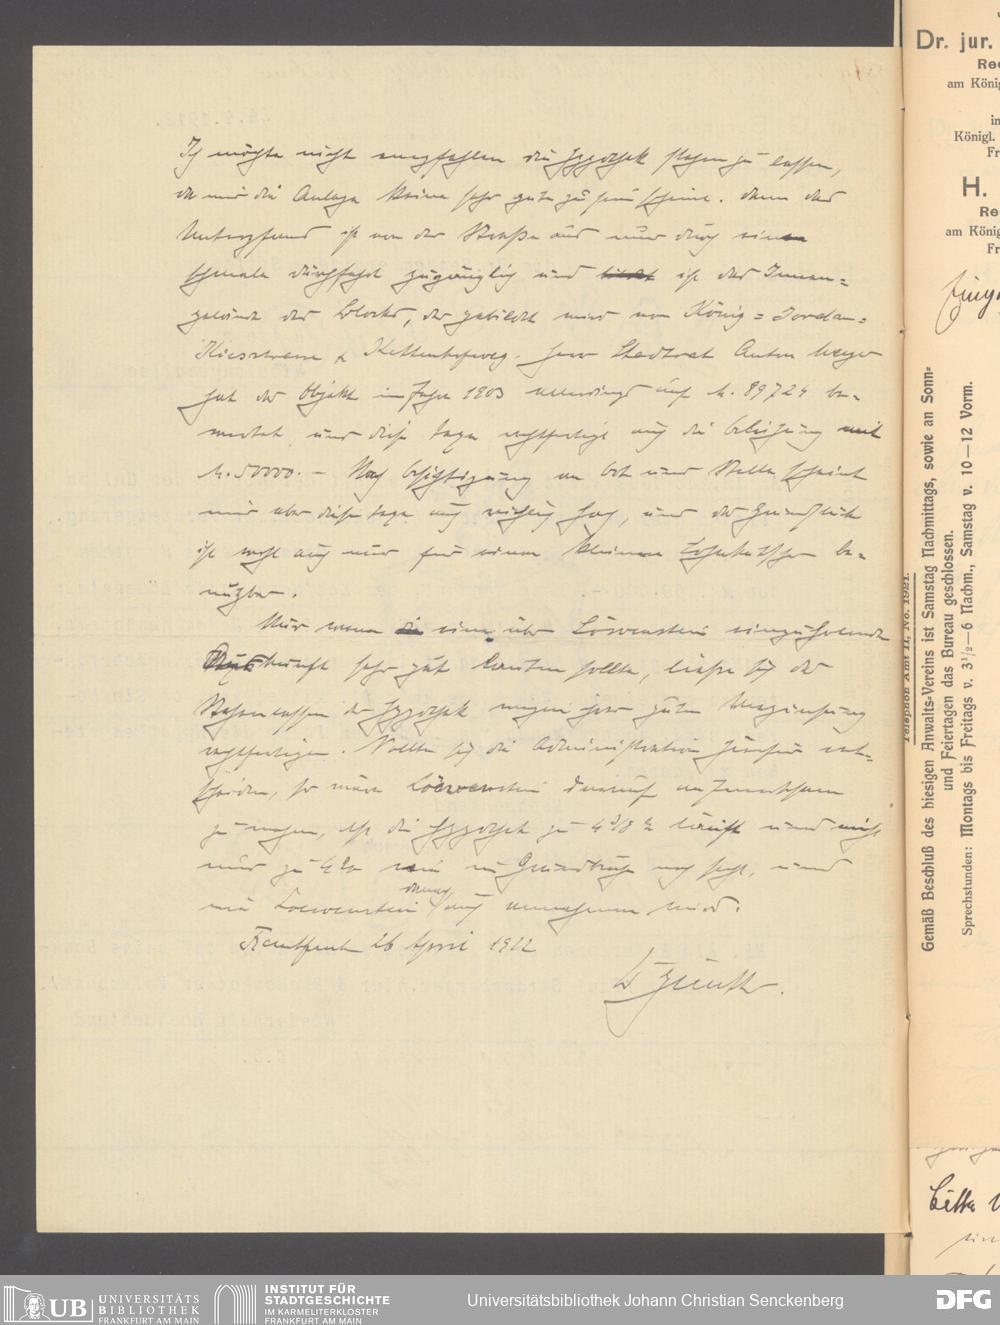 Ich möchte nicht empfehlen die Hypothek stehen zu lassen,
da mir die Anlage keine sehr gute zu sein scheint. denn das
Unterpfand ist von der Straße aus nur durch eine
schmale Durchfahrt zugänglich und ist das Innen-
gelände des Blocks, der gebildet wird von König- Jordan-
Kiesstrasse & Kettenhofweg. Herr Stadtrat Anton Meyer
hat das Objekt im Jahre 1903 allerdings auf M. 89724 be-
wertet, und diese Taxe rechtfertigt auch die Beleihung mit
M. 50000.- Nach Besichtigung an Ort und Stelle scheint
mir aber diese Taxe auch reichlich hoch, und das Grundstück
ist wohl auch nur für einen kleinen be-
nutzbar.
Nur wenn die eine über Löwenstein einzuholende
Auskunft sehr gut lauten sollte, ließe sich das
Stehenlassen der Hypothek wegen ihrer guten Verzinsung
rechtfertigen. Sollte sich die Administration hierfür ent-
scheiden, so wäre Löwenstein darauf aufmerksam
zu machen, daß die Hypothek zu 4 3/8 % läuft und nicht
nur zu 4 % wie im Grundbuch noch steht, und
wie Loewenstein danach auch annehmen wird.
Frankfurt 26 April 1912
Dr. jur.
Rec
am König
in
Königl.
Fr
H.
Rec
am König
Fr
Telephon Amt II, No. 1921.
Gemäß Beschluß des hiesigen Anwalts-Vereins ist Samstag Nachmittags, sowie an Sonn-
und Feiertagen das Bureau geschlossen.
Sprechstunden: Montags bis Freitags v. 3½–6 Nachm., Samstag v. 10–12 Vorm.
Bitte
UB UNIVERSITÄTS
BIBLIOTHEK
FRANKFURT AM MAIN
INSTITUT FÜR
STADTGESCHICHTE
IM KARMELITERKLOSTER
FRANKFURT AM MAIN
Universitätsbibliothek Johann Christian Senckenberg
DFG